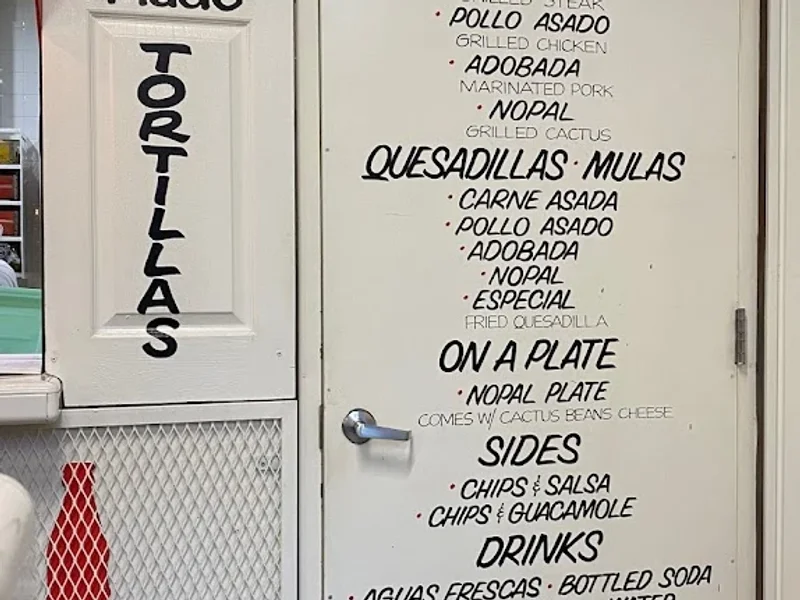 Made
TORTILLAS
GRILLED STEAK
· POLLO ASADO
GRILLED CHICKEN
· ADOBADA
MARINATED PORK
· NOPAL
GRILLED CACTUS
QUESADILLAS · MULAS
· CARNE ASADA
· POLLO ASADO
· ADOBADA
· NOPAL
· ESPECIAL
FRIED QUESADILLA
ON A PLATE
· NOPAL PLATE
COMES W/ CACTUS BEANS CHEESE
SIDES
· CHIPS & SALSA
· CHIPS & GUACAMOLE
DRINKS
· AGUAS FRESCAS · BOTTLED SODA
WATER